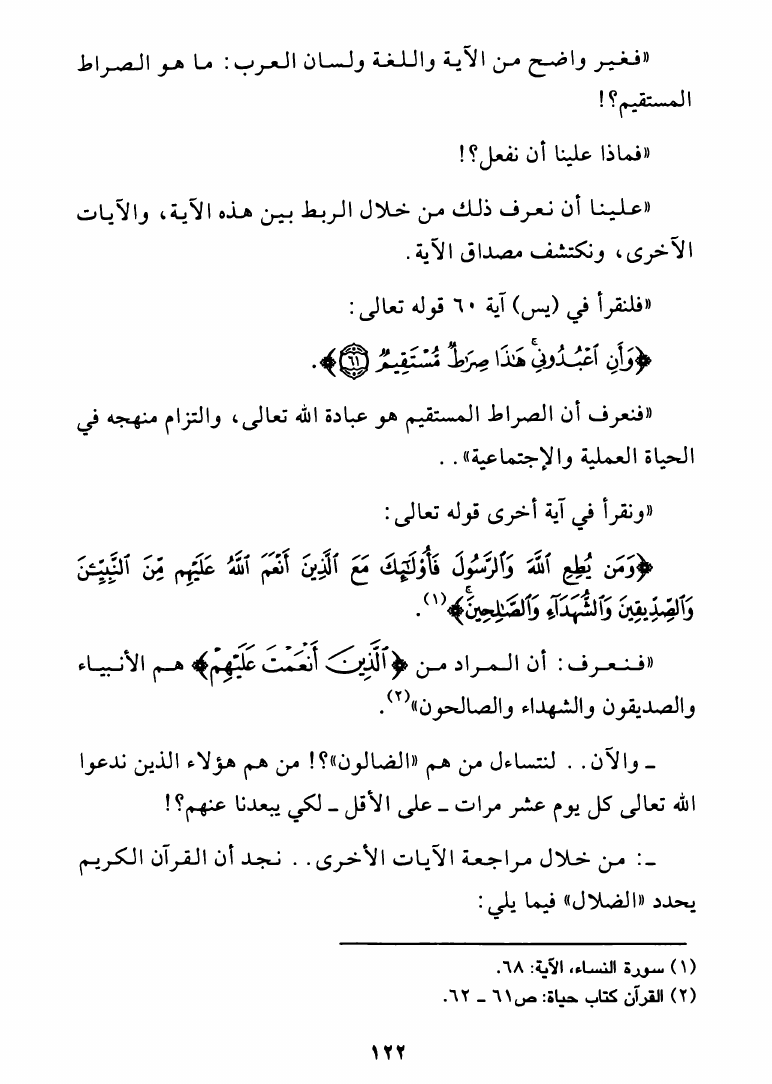 «فغير واضح من الآية واللغة ولسان العرب: ما هو الصراط
المستقيم؟!
«فماذا علينا أن نفعل؟!
«علينا أن نعرف ذلك من خلال الربط بين هذه الآية، والآيات
الآخرى، ونكتشف مصداق الآية.
«فلنقرأ في (يس) آية ٦٠ قوله تعالى:
﴿وَأَنِ ٱعْبُدُونِىۚ هَٰذَا صِرَٰطٌ مُّسْتَقِيمٌ ٦١﴾.
«فنعرف أن الصراط المستقيم هو عبادة الله تعالى، والتزام منهجه في
الحياة العملية والإجتماعية»..
«ونقرأ في آية أخرى قوله تعالى:
﴿وَمَن يُطِعِ ٱللَّهَ وَٱلرَّسُولَ فَأُو۟لَٰٓئِكَ مَعَ ٱلَّذِينَ أَنْعَمَ ٱللَّهُ عَلَيْهِم مِّنَ ٱلنَّبِيِّـۧنَ
وَٱلصِّدِّيقِينَ وَٱلشُّهَدَآءِ وَٱلصَّٰلِحِينَۚ﴾(١).
«فنعرف: أن المراد من ﴿ٱلَّذِينَ أَنْعَمْتَ عَلَيْهِمْ﴾ هم الأنبياء
والصديقون والشهداء والصالحون»(٢).
ـ والآن.. لنتساءل من هم «الضالون»؟! من هم هؤلاء الذين ندعوا
الله تعالى كل يوم عشر مرات ـ على الأقل ـ لكي يبعدنا عنهم؟!
ـ: من خلال مراجعة الآيات الأخرى.. نجد أن القرآن الكريم
يحدد «الضلال» فيما يلي:
(١) سورة النساء، الآية: ٦٨.
(٢) القرآن كتاب حياة: ص٦١ ـ ٦٢.
١٢٢